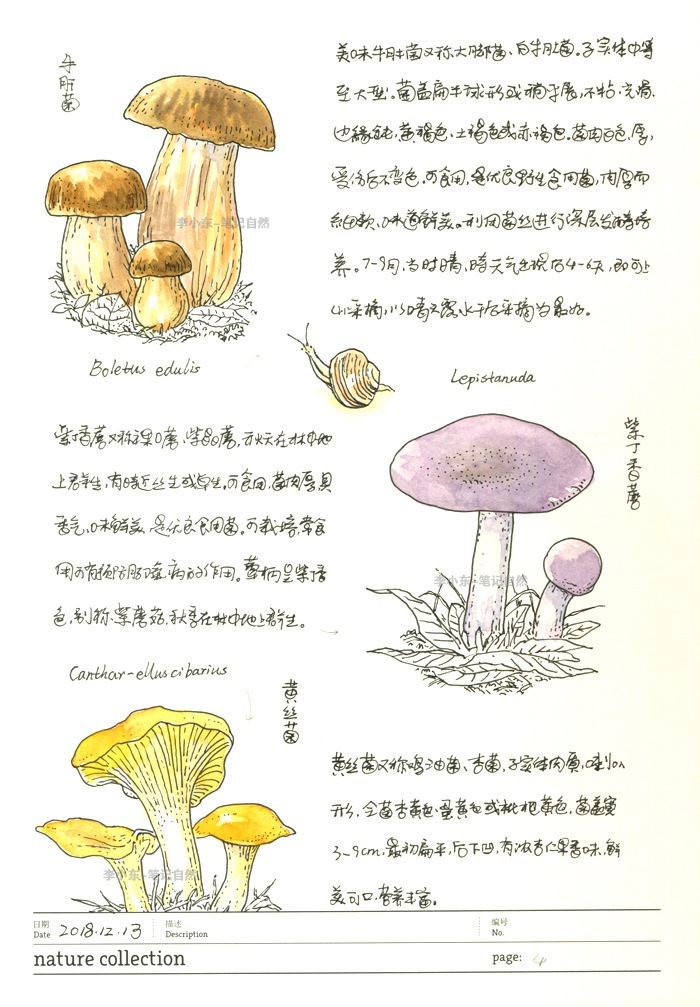 牛肝菌
美味牛肝菌又称大脚菌、白牛肝菌。子实体中等
至大型。菌盖扁半球形或稍平展,不粘,光滑,
边缘钝,黄褐色、土褐色或赤褐色。菌肉白色,厚,
受伤后不变色。可食用,是优良野生食用菌,肉厚而
细软、味道鲜美。利用菌丝进行深层发酵培
养。7-9月,当时晴,时天气出现后4-6天,即可上
山采摘,以晴天露水干后采摘为最好。
李小东-笔记自然
Boletus edulis
Lepistanuda
紫丁香蘑
紫丁香蘑又称裸口蘑、紫晶蘑,秋天在林中地
上群生,有时近丛生或单生。可食用,菌肉厚,具
香气,味鲜美,是优良食用菌。可栽培,常食
用可有预防脚气病的作用。蘑柄呈紫丁香
色,别称紫蘑菇,秋季在林中地上群生。
李小东-笔记自然
Canthar-elluscibarius
黄丝菌
黄丝菌又称鸡油菌、杏菌,子实体肉质,喇叭
形,全菌杏黄色、蛋黄色或枇杷黄色,菌盖宽
3-9cm,最初扁平,后下凹,有浓杏仁果香味,鲜
美可口,营养丰富。
李小东-笔记自然
日期 描述 编号
Date 2018.12.13 Description No.
nature collection page: 4